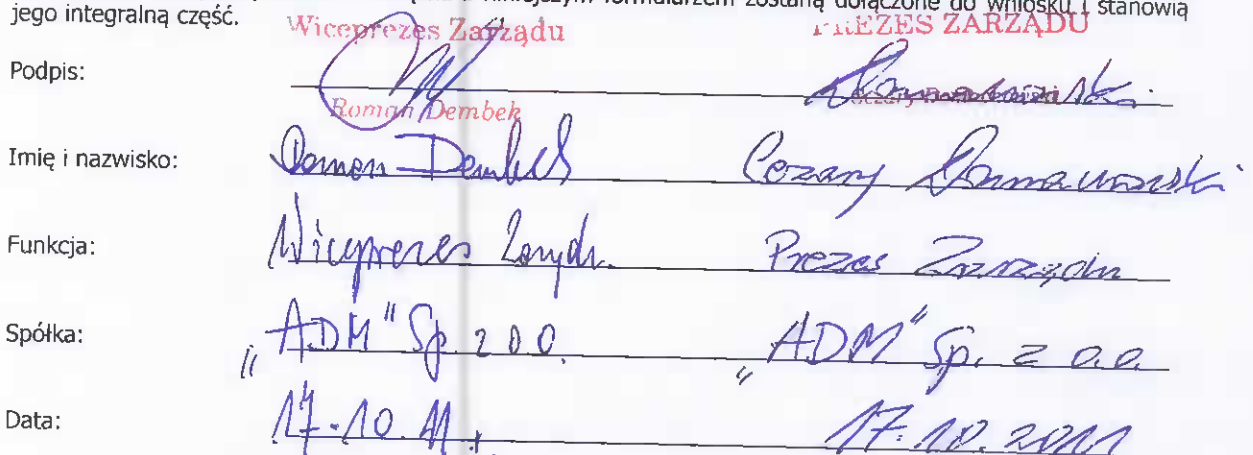 formularzem zostaną dołączone do wniosku i stanowią
jego integralną część.
Wiceprezes Zarządu PREZES ZARZĄDU
Podpis:
Roman Dembek
Imię i nazwisko: Roman Dembek Cezary Domarowski
Funkcja: Wiceprezes Zarządu Prezes Zarządu
Spółka: „ADM" Sp. z o.o. „ADM" Sp. z o.o.
Data: 17.10.11. 17.10.2011